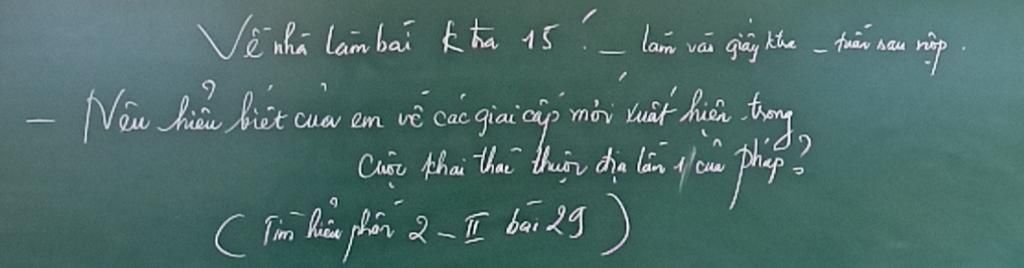 Về nhà làm bài ktra 15' - làm vào giấy ktra - tuần sau nộp.
- Nêu hiểu biết của em về các giai cấp mới xuất hiện trong
cuộc khai thác thuộc địa lần 1 của Pháp?
(Tìm hiểu phần 2 - II bài 29)